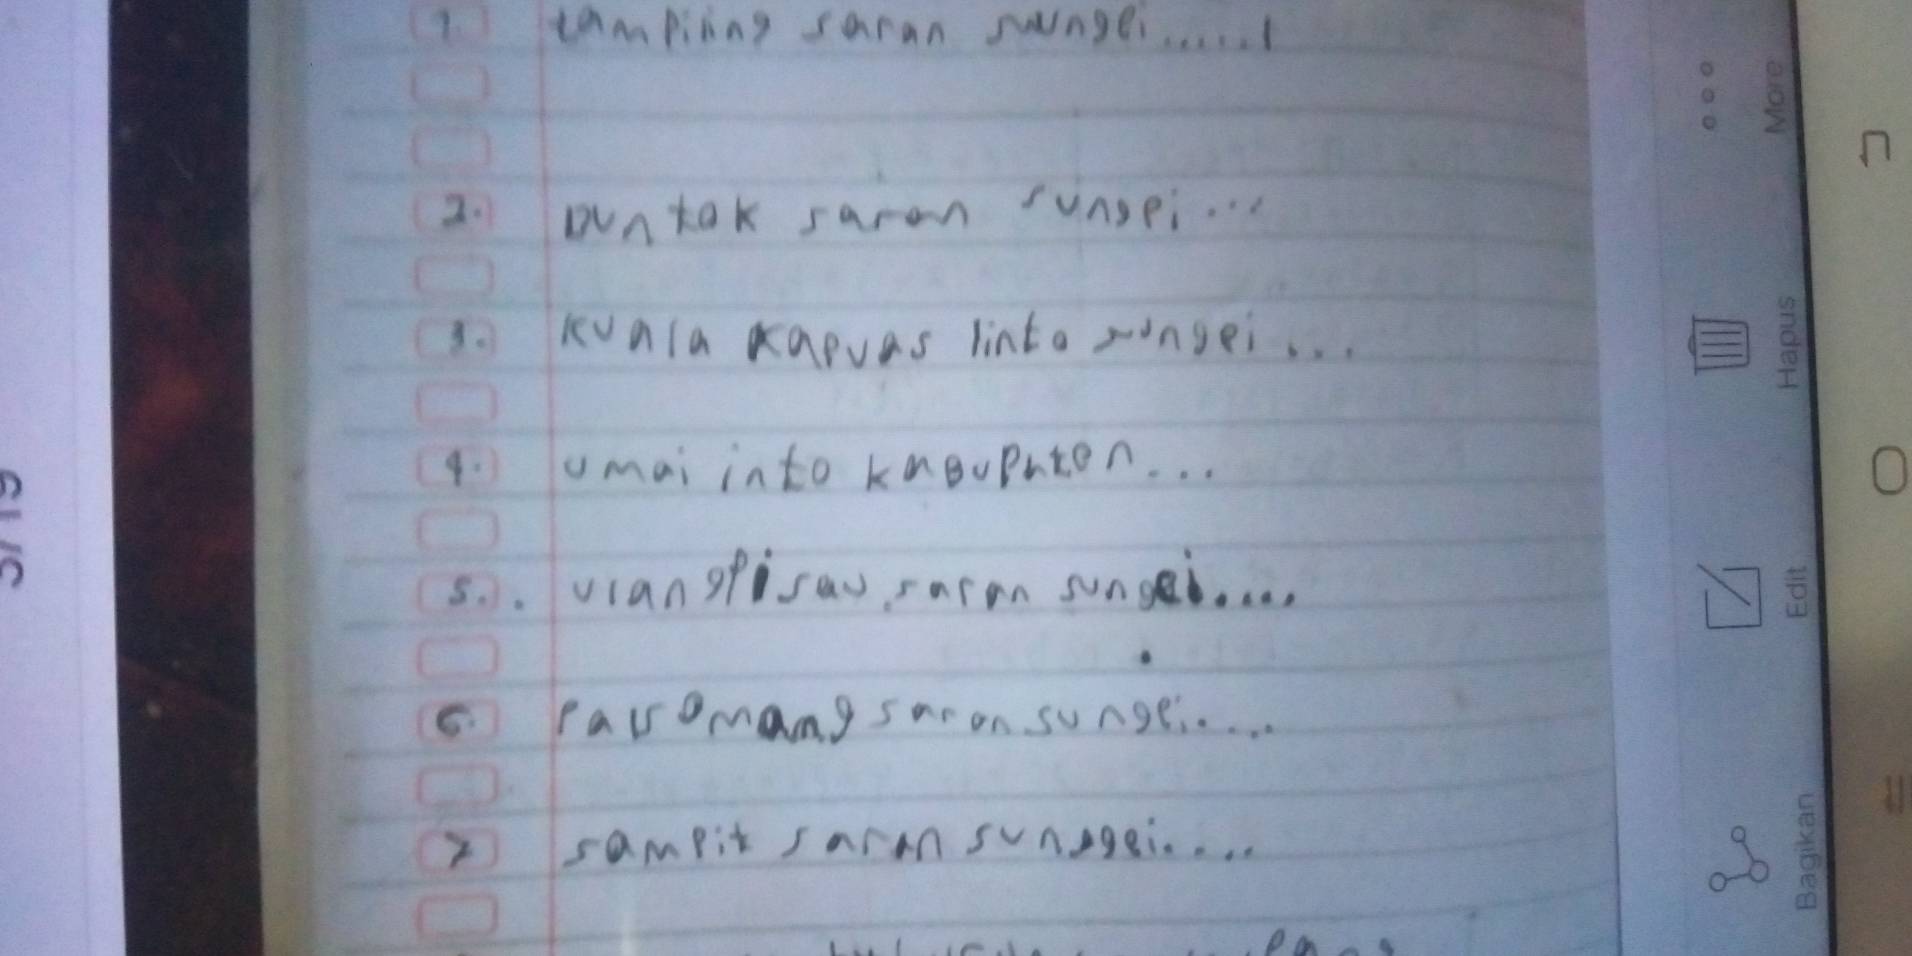 1. tampining saran sungei......1
2. Buntok saran sungei...
3. kuala kapuas linto sungei....
4. umai into kabupaten....
5.. ulangpisau saran sungei.....
6. saran sungei.....
7 sampit saran sunggei.....
More
Hapus
Edit
Bagikan